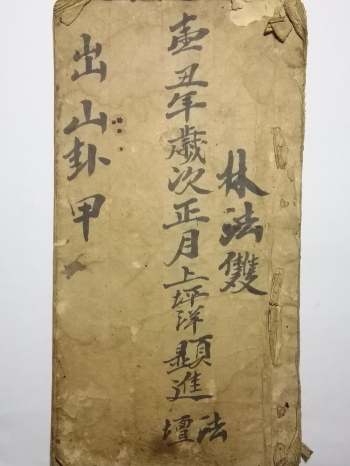 林法雙
壷丑年歲次正月上坪洋顕進法壇
出山卦甲